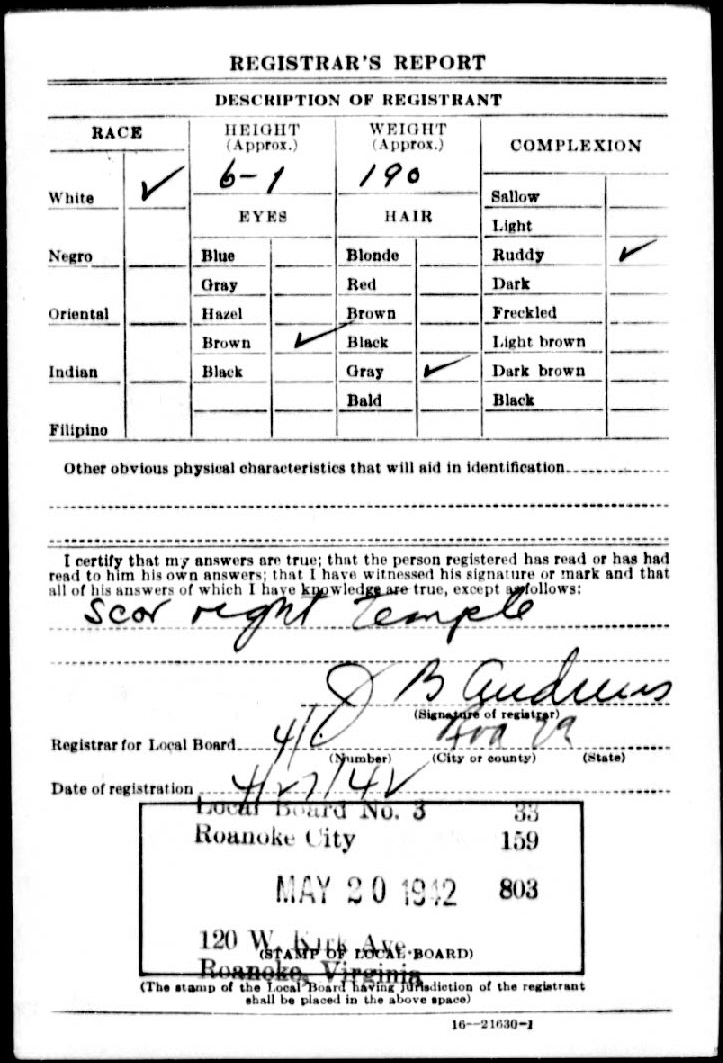 REGISTRAR'S REPORT
DESCRIPTION OF REGISTRANT
RACE
HEIGHT
(Approx.)
WEIGHT
(Approx.)
COMPLEXION
6-1
190
White ✓
EYES
HAIR
Sallow
Light
Negro
Blue
Blonde
Ruddy ✓
Gray
Red
Dark
Oriental
Hazel
Brown
Freckled
Brown ✓
Black
Light brown
Indian
Black
Gray ✓
Dark brown
Bald
Black
Filipino
Other obvious physical characteristics that will aid in identification
I certify that my answers are true; that the person registered has read or has had
read to him his own answers; that I have witnessed his signature or mark and that
all of his answers of which I have knowledge are true, except as follows:
Scar right Temple
J B Andrews
(Signature of registrar)
Registrar for Local Board
Roa Va
(Number) (City or county) (State)
Date of registration 4/27/42
Local Board No. 3 33
Roanoke City 159
MAY 20 1942 803
120 W. Kirk Ave.
(STAMP OF LOCAL BOARD)
Roanoke, Virginia
(The stamp of the Local Board having jurisdiction of the registrant
shall be placed in the above space)
16—21630-1